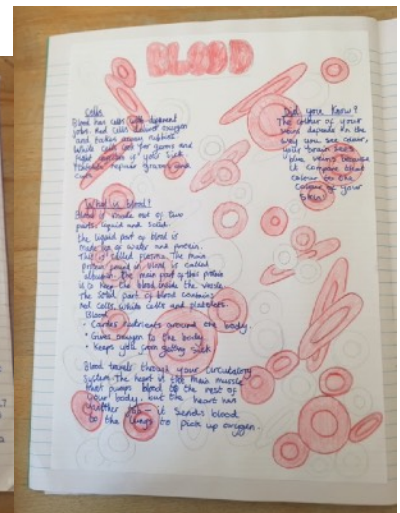 BLOOD
Cells
Blood has cells with different
jobs. Red cells deliver oxygen
and takes away rubbish
White cells look for germs and
fight germs if your sick
Platelets repair grazes and
cuts.
Did you know?
The colour of your
veins depends on the
way you see colour,
your brain sees
blue veins because
it compares blood
colour to the
colour of your
skin!
What is blood?
Blood is made out of two
parts, liquid and solid.
the liquid part of blood is
made up of water and protein.
This is called plasma. The main
protein found in blood is called
albumin. the main part of this protein
is to keep the blood inside the vessle.
The solid part of blood contains
red cells, white cells and platelets.
Blood
• Carries nutrients around the body.
• Gives oxygen to the body
• Keeps you from getting sick
Blood travels through your circulatory
system. The heart is the main muscle
that pumps blood to the rest of
your body, but the heart has
another job - it sends blood
to the lungs to pick up oxygen.